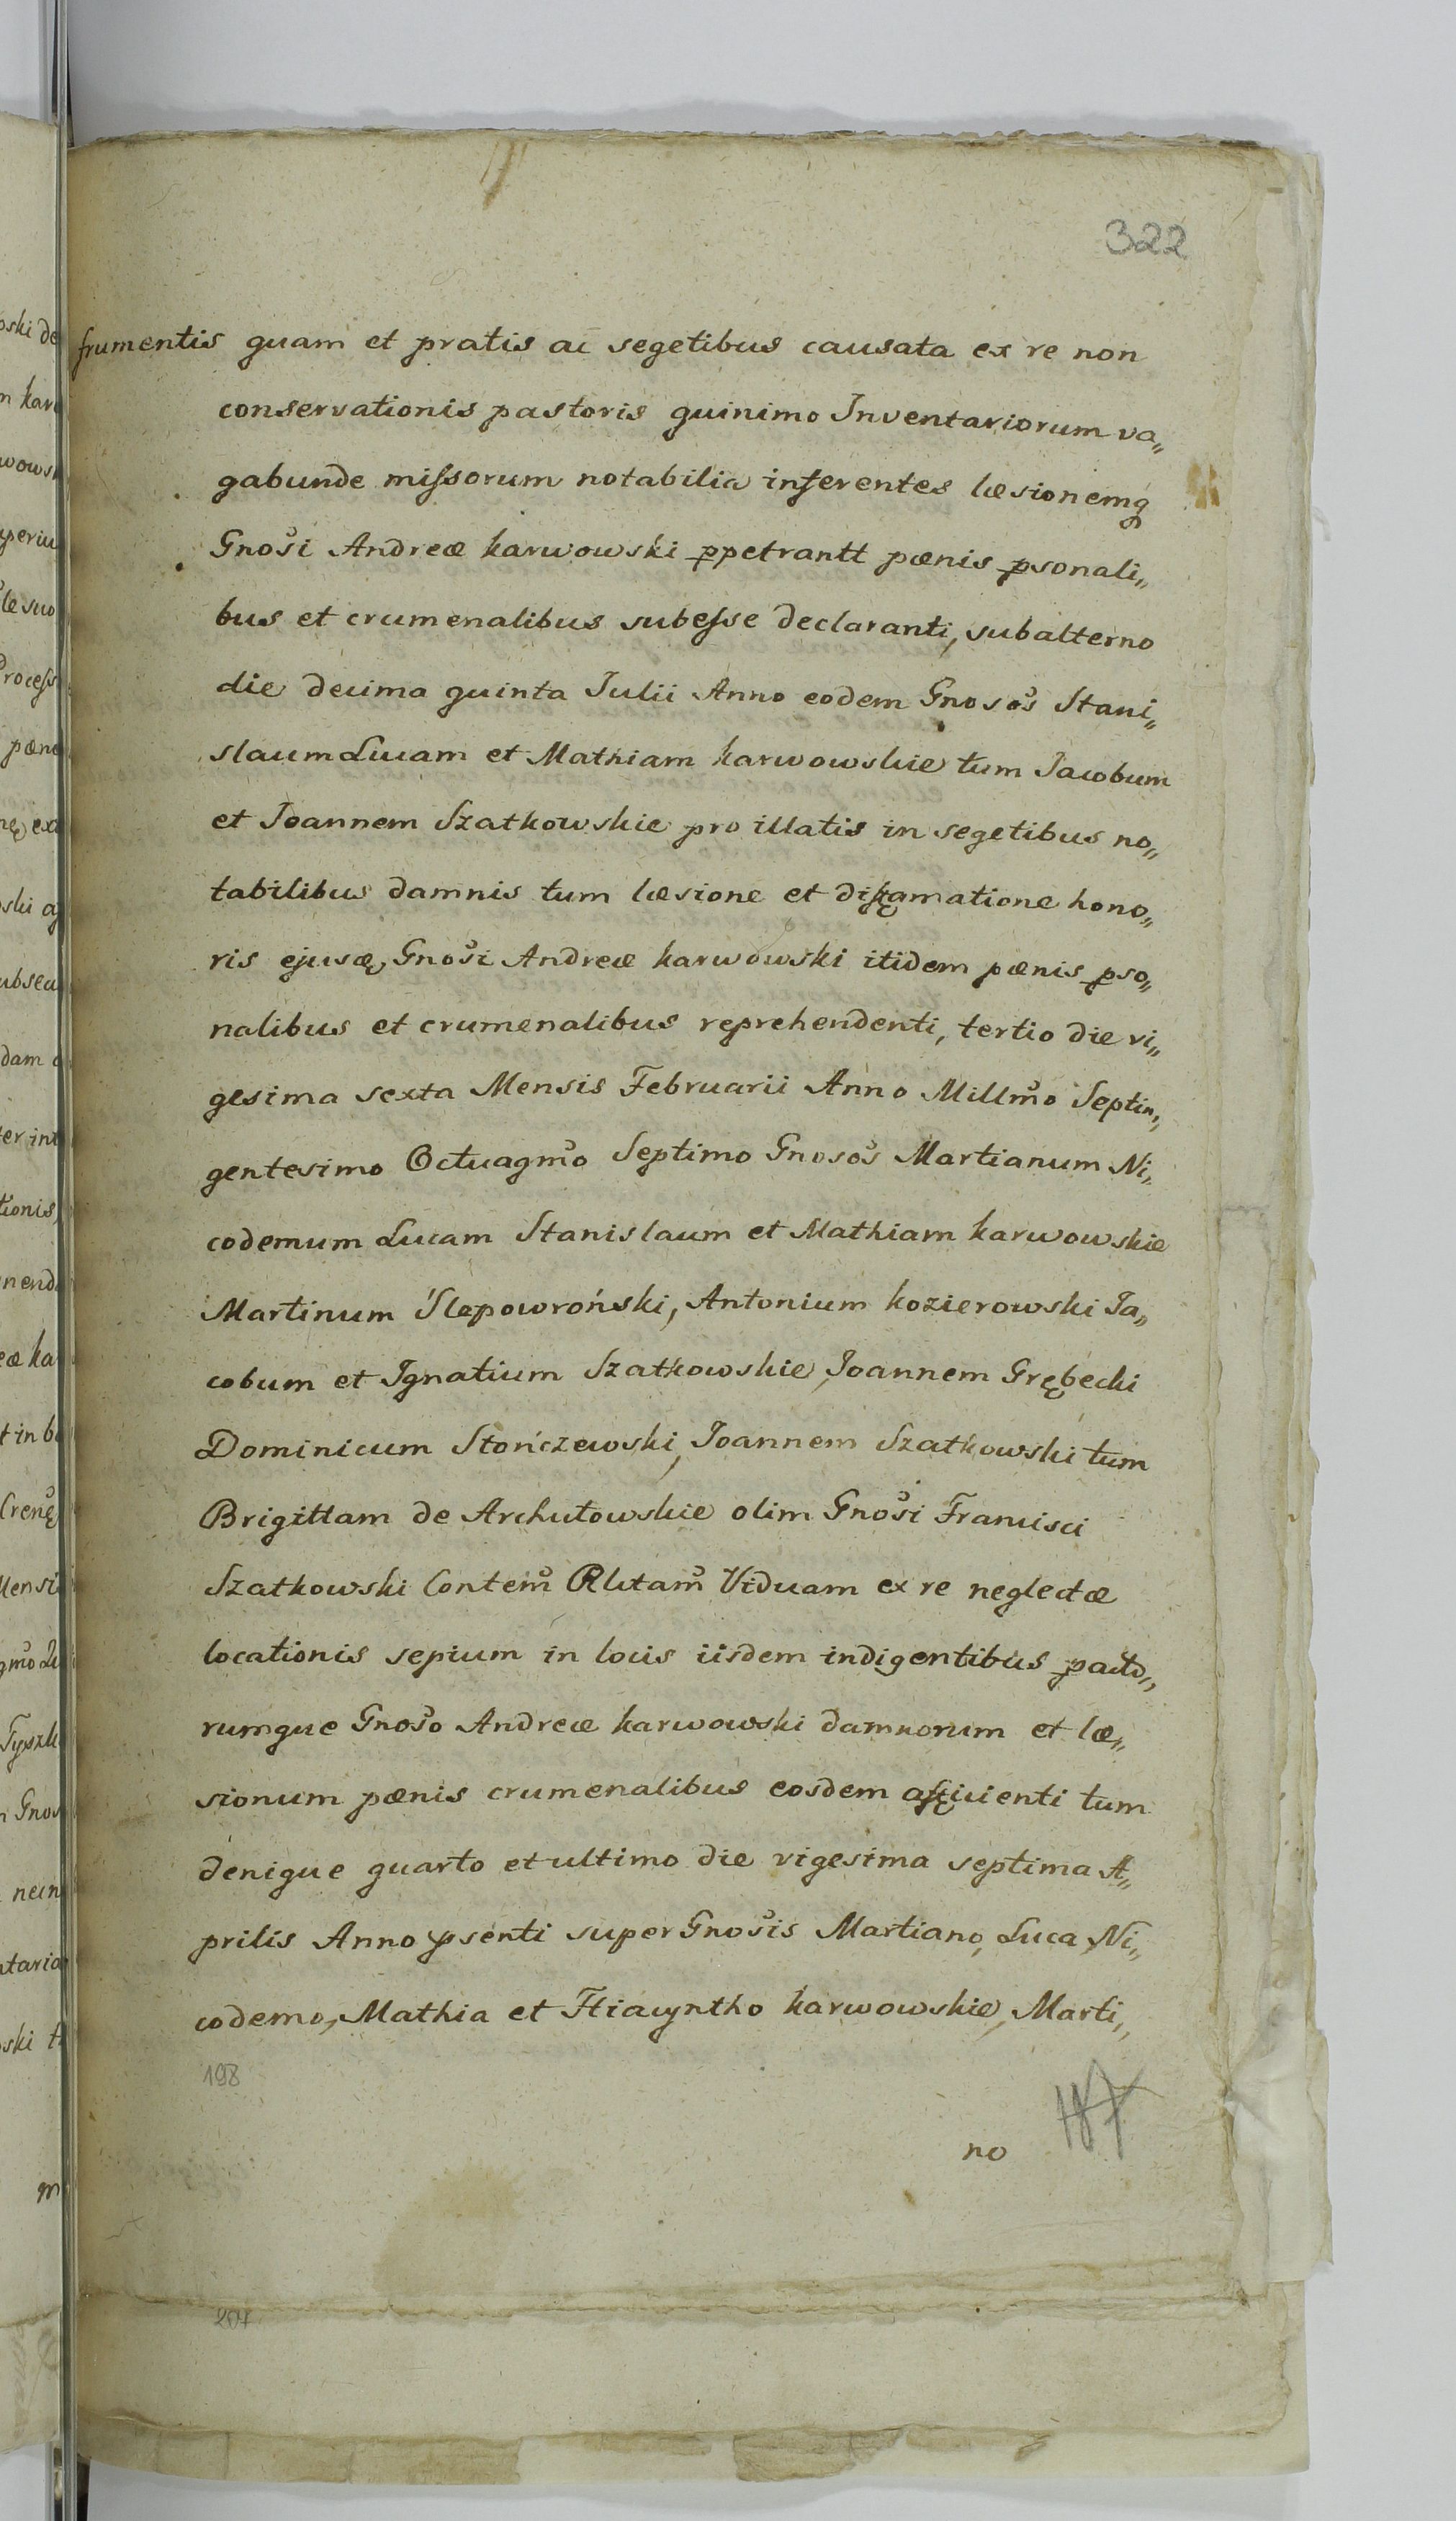 322
frumentis quam et pratis ac segetibus causata ex re non
conservationis pastoris quinimo Inventariorum va„
gabunde missorum notabilia inferentes læsionemq
Gnosi Andreæ karwowski ppetrantt pænis psonali„
bus et crumenalibus subesse declaranti, subalterno
die decima quinta Julii Anno eodem Gnosos Stani„
slaum Lucam et Mathiam karwowskie tum Jacobum
et Joannem Szatkowskie pro illatis in segetibus no„
tabilibus damnis tum læsione et diffamatione hono„
ris ejusd, Gnosi Andreæ karwowski itidem pænis pso„
nalibus et crumenalibus reprehendenti, tertio die vi„
gesima sexta Mensis Februarii Anno Millmo Septin„
gentesimo Octuagmo Septimo Gnosos Martianum Ni„
codemum Lucam Stanislaum et Mathiam karwowskie
Martinum Slepowroński, Antonium kozierowski Ja„
cobum et Ignatium Szatkowskie, Joannem Grębecki
Dominicum Stończewski, Joannem Szatkowski tum
Brigittam de Archutowskie olim Gnosi Francisci
Szatkowski Contem Rlitam Viduam ex re neglectæ
locationis sepium in locis iisdem indigentibus pacto„
rumque Gnoso Andreæ karwowski damnorum et læ„
sionum pænis crumenalibus eosdem afficienti tum
denique quarto et ultimo die vigesima septima A„
prilis Anno psenti super Gnosis Martiano, Luca, Ni„
codemo, Mathia et Hiacyntho karwowskie, Marti„
198
187
no
207